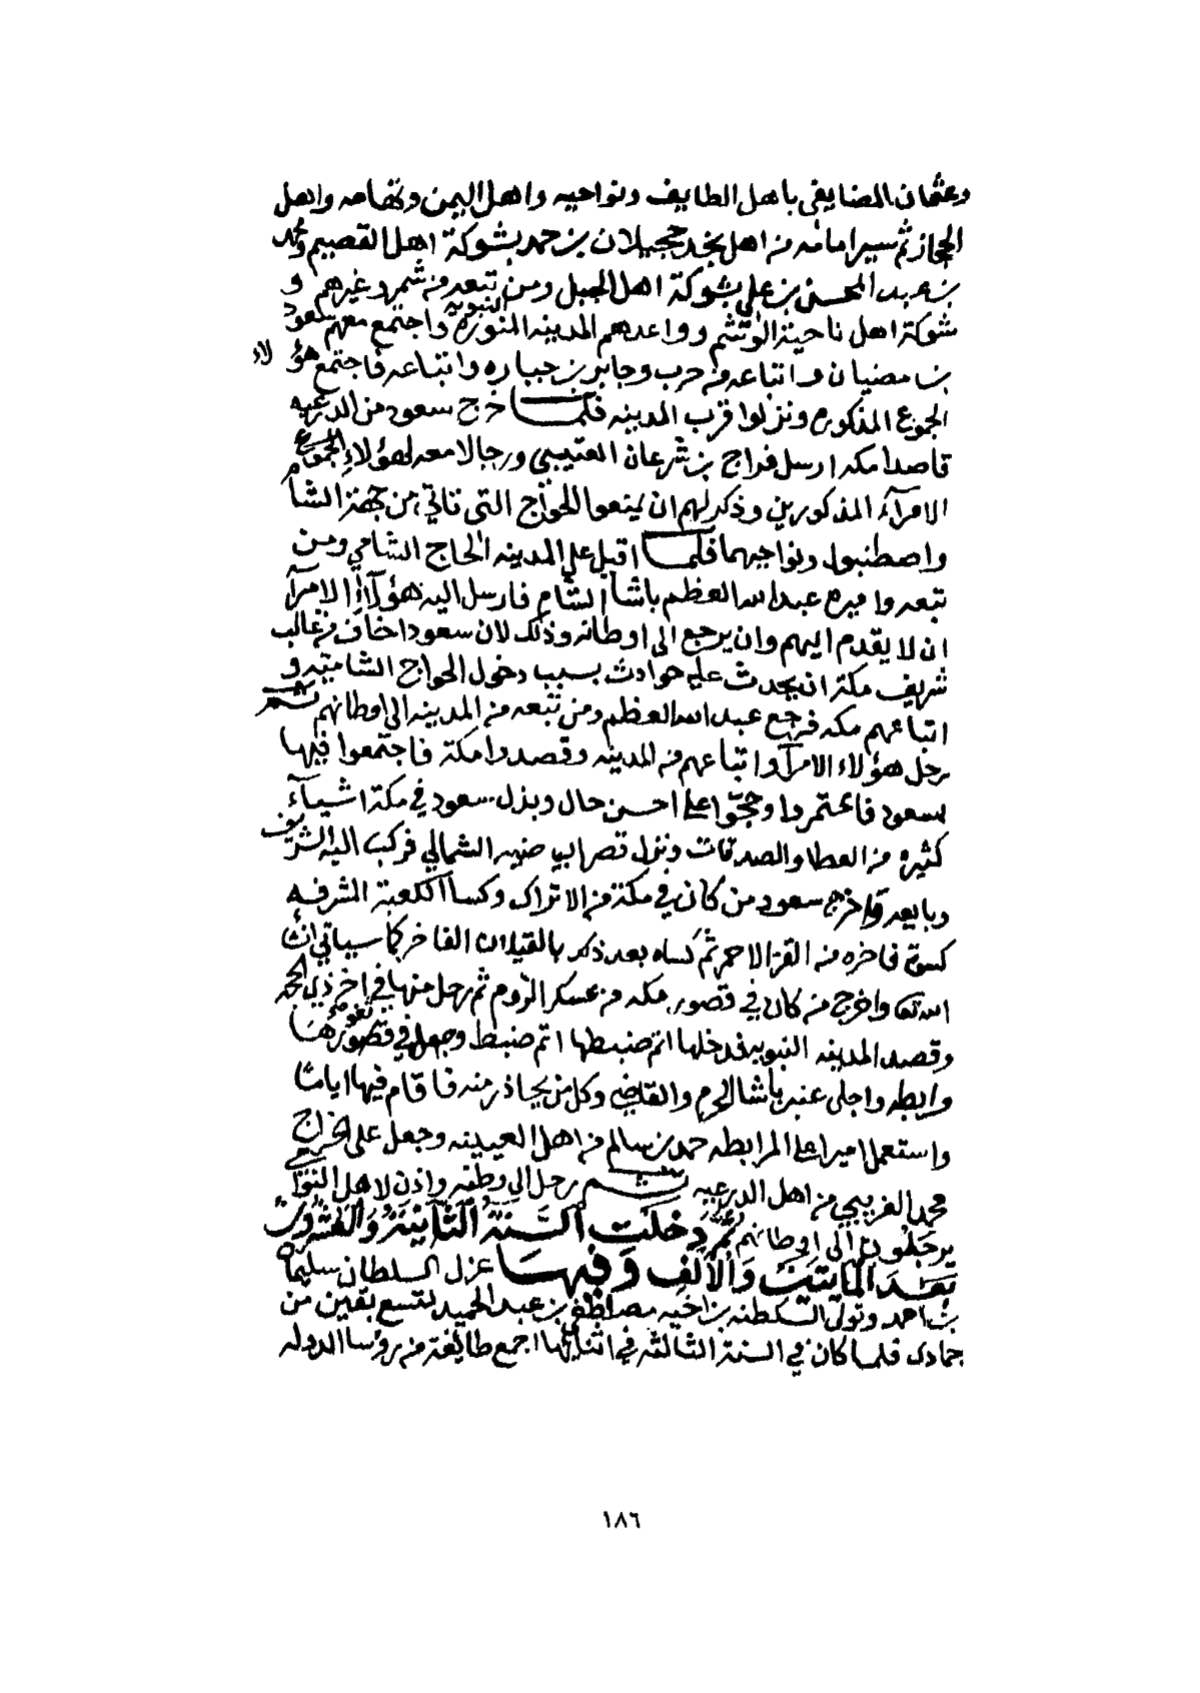 وعثمان المضايفي باهل الطايف ونواحيه واهل اليمن وتهامه واهل
الحجاز ثم سير امامه من اهل نجد حجيلان بن حمد بشوكة اهل القصيم ومحمد
بن عبد المحسن بن علي بشوكة اهل الجبل ومن تبعه من شمر وغيرهم و
شوكة اهل ناحية الوشم وواعدهم المدينه المنورة النبويه واجتمع معهم مسعود
بن مضيان واتباعه من حرب وجابر بن جباره واتباعه فاجتمع هؤلاء
الجموع المذكوره ونزلوا قرب المدينه فلما خرج سعود من الدرعيه
قاصدا مكه ارسل فراج بن شرعان العتيبي ورجالا معه لهؤلاء الجموع
الامرآء المذكورين وذكر لهم ان يمنعوا الحواج التي تاتي من جهة الشام
واصطنبول ونواحيهما فلما اقبل على المدينه الحاج الشامي ومن
تبعه واميره عبد الله العظم باشا الشام فارسل اليه هؤلاء الامرآ
ان لا يقدم اليهم وان يرجع الى اوطانه وذلك لان سعودا خاف من غالب
شريف مكة ان يحدث عليه حوادث بسبب دخول الحواج الشاميه و
اتباعهم مكه فرجع عبد الله العظم ومن تبعه من المدينه الى اوطانهم ثم
رحل هؤلاء الامرآ واتباعهم من المدينه وقصدوا مكة فاجتمعوا فيها
بسعود فاعتمروا وحجوا على احسن حال وبذل سعود في مكة اشيآء
كثيره من العطا والصدقات ونزل قصر البياضيه الشمالي فركب اليه الشريف
وبايعه واخرج سعود من كان في مكة من الاتراك وكسا الكعبة المشرفه
كسوة فاخره من القز الاحمر ثم كساه بعد ذلك بالقيلان الفاخر كما سياتي ان شا
الله تعالى واخرج من كان في قصور مكه من عسكر الروم ثم رحل منها في اخر ذي الحجه
وقصد المدينه النبويه فدخلها وضبطها اتم ضبط وجعل في قصورها ثغورها
مرابطه واجلى عنبر باشا الحرم والقاضي وكل من يحاذر منه فاقام فيها اياما
واستعمل اميرا على المرابطه حمد بن سالم من اهل العيينه وجعل على الخراج
محمد الغريبي من اهل الدرعيه ثم رحل الى وطنه واذن لاهل النواحي
يرحلون الى اوطانهم ثم دخلت السنة الثانية والعشرون
بعد المايتين والالف وفيها عزل السلطان سليم
بن احمد وتولى السلطنه بن اخيه مصطفى بن عبد الحميد لتسع بقين من
جمادى فلما كان في السنة الثالثه في اثنايها اجمع طايفة من رؤسا الدوله
١٨٦